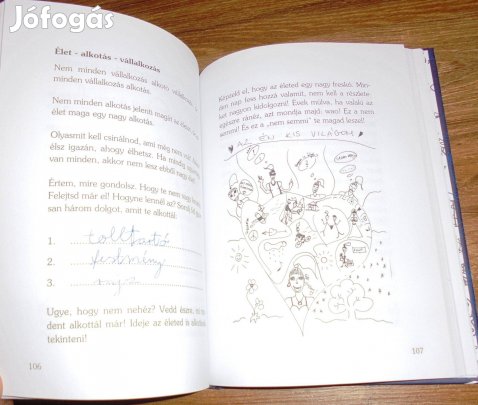 Jófogás
Élet - alkotás - vállalkozás
Nem minden vállalkozás alkotó vállalkozás,
minden vállalkozás alkotás.
Nem minden alkotás jelenti magát az életet,
élet maga egy nagy alkotás.
Olyasmit kell csinálnod, ami még nem volt.
élsz igazán, ahogy élhetsz. Ha mindig
van minden, akkor nem lesz ebből nagy
Értem, mire gondolsz. Hogy te nem vagy
Felejtsd már el! Hogyne lennél az? Sorolj fel
san három dolgot, amit te alkottál:
1. tolltartó
2. festmény
3.
Ugye, hogy nem nehéz? Vedd észre,
dent alkottál már! Ideje az életed is
tekinteni!
106
Képzeld el, hogy az életed egy nagy freskó. Min-
den nap fess hozzá valamit, nem kell a részlete-
ket nagyon kidolgozni! Évek múlva, ha valaki az
egészre ránéz, azt mondja majd: wao! Ez a nem
semmi! És ez a „nem semmi” te magad leszel!
AZ ÉN KIS VILÁGOM
107